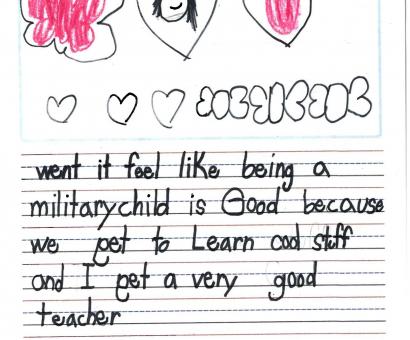 went it feel like being a
militarychild is Good because
we get to Learn cool stiff
and I get a very good
teacher